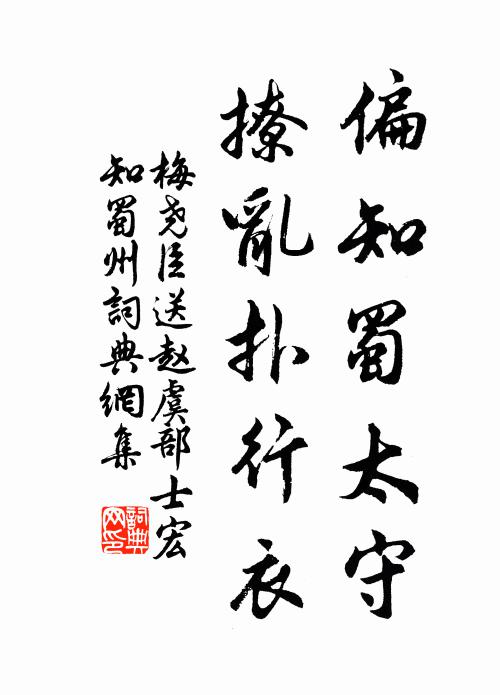 偏知蜀太守
撩亂扑行衣
梅尧臣送赵虞部士宏
知蜀州詞典網集
詞典
网印